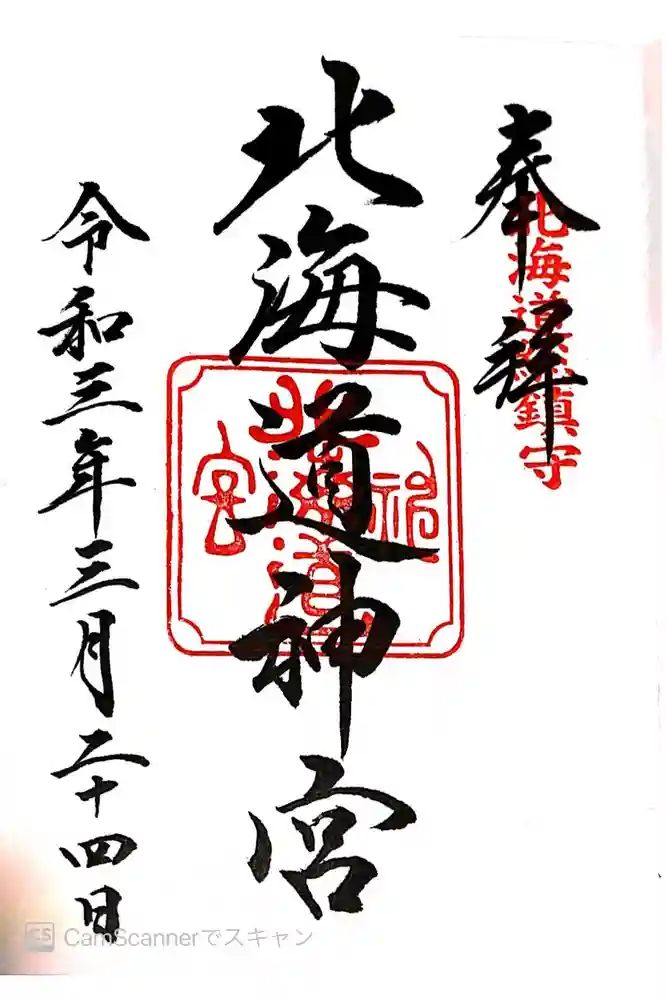 奉拝
北海道総鎮守
北海道神宮
北海道神宮
令和三年三月二十四日
CS CamScannerでスキャン